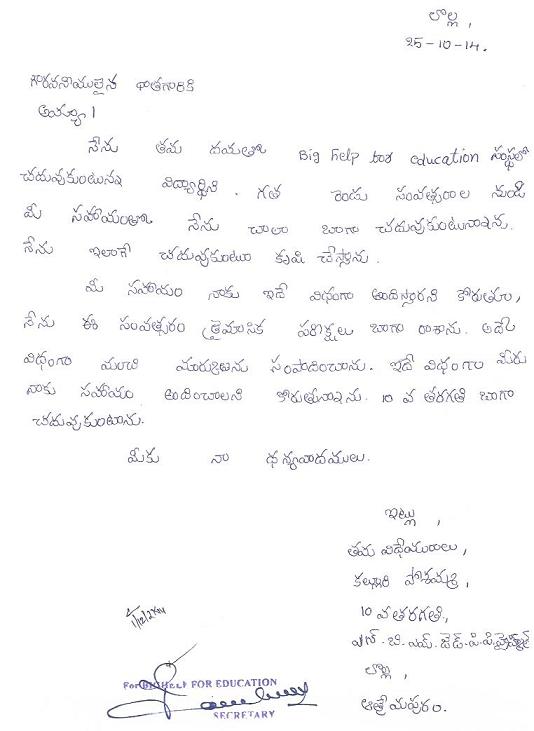 లొల్ల,
25-10-14.
గౌరవనీయులైన దాతగారికి
అయ్యా!
నేను తమ దయతో Big Help for education సంస్థలో
చదువుకుంటున్న విద్యార్థిని. గత రెండు సంవత్సరాల నుండి
మీ సహాయంతో నేను చాలా బాగా చదువుకుంటున్నాను.
నేను ఇలాగే చదువుకుంటూ కృషి చేస్తాను.
మీ సహాయం నాకు ఇదే విధంగా అందిస్తారని కోరుతూ,
నేను ఈ సంవత్సరం త్రైమాసిక పరీక్షలు బాగా రాశాను. అదే
విధంగా మంచి మార్కులను సంపాదించాను. ఇదే విధంగా మీరు
నాకు సహాయం అందించాలని కోరుతున్నాను. 10 వ తరగతి బాగా
చదువుకుంటాను.
మీకు నా ధన్యవాదములు.
ఇట్లు,
తమ విధేయురాలు,
పోశమ్మ,
10 వ తరగతి,
ఎస్.బి.ఎమ్.జెడ్.పి.పి.హైస్కూల్
లొల్ల,
ఆత్రేయపురం.
For BIG HELP FOR EDUCATION
SECRETARY